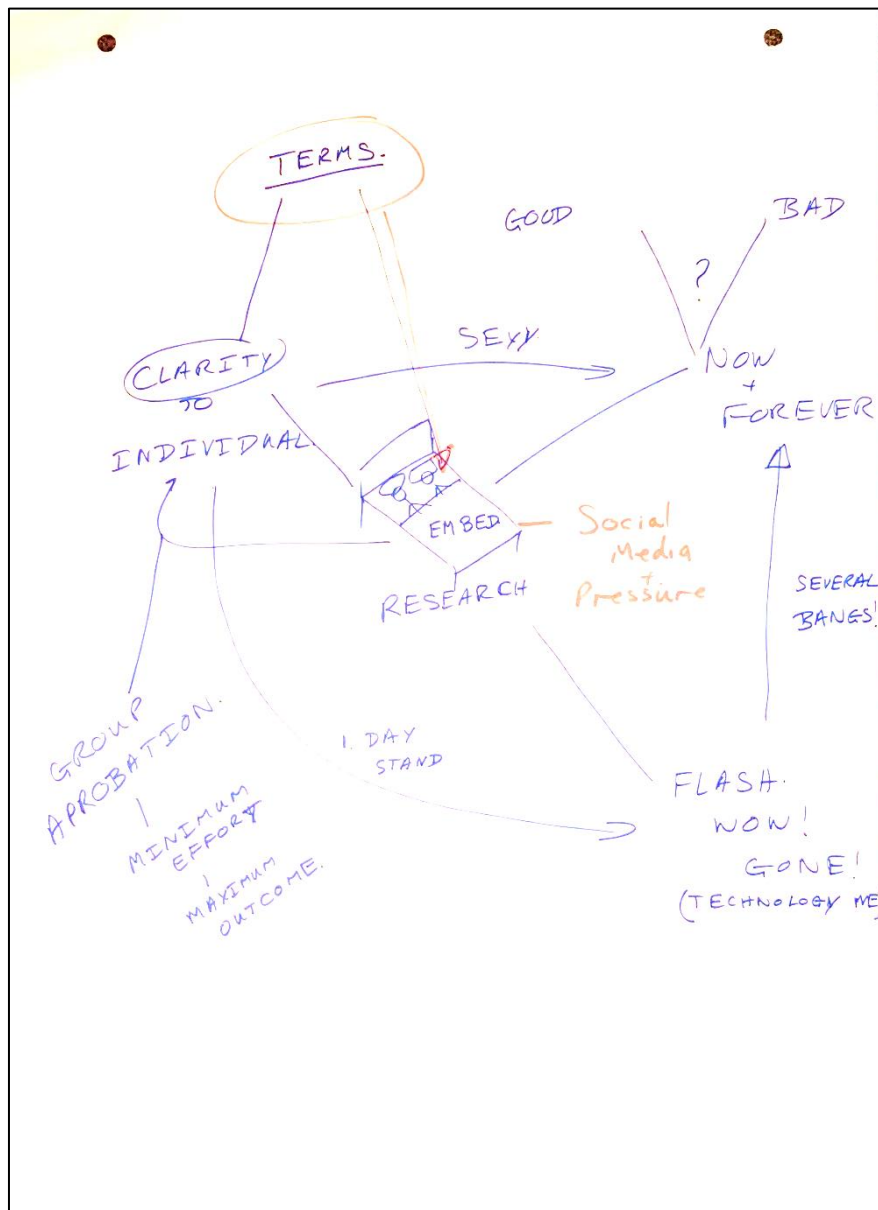 TERMS.
GOOD
BAD
?
SEXY
CLARITY
TO
INDIVIDUAL.
NOW
+
FOREVER
EMBED
RESEARCH
Social
Media
+
Pressure
SEVERAL
BANGS!
GROUP
APROBATION.
MINIMUM
EFFORT
MAXIMUM
OUTCOME.
1. DAY
STAND
FLASH.
WOW!
GONE!
(TECHNOLOGY